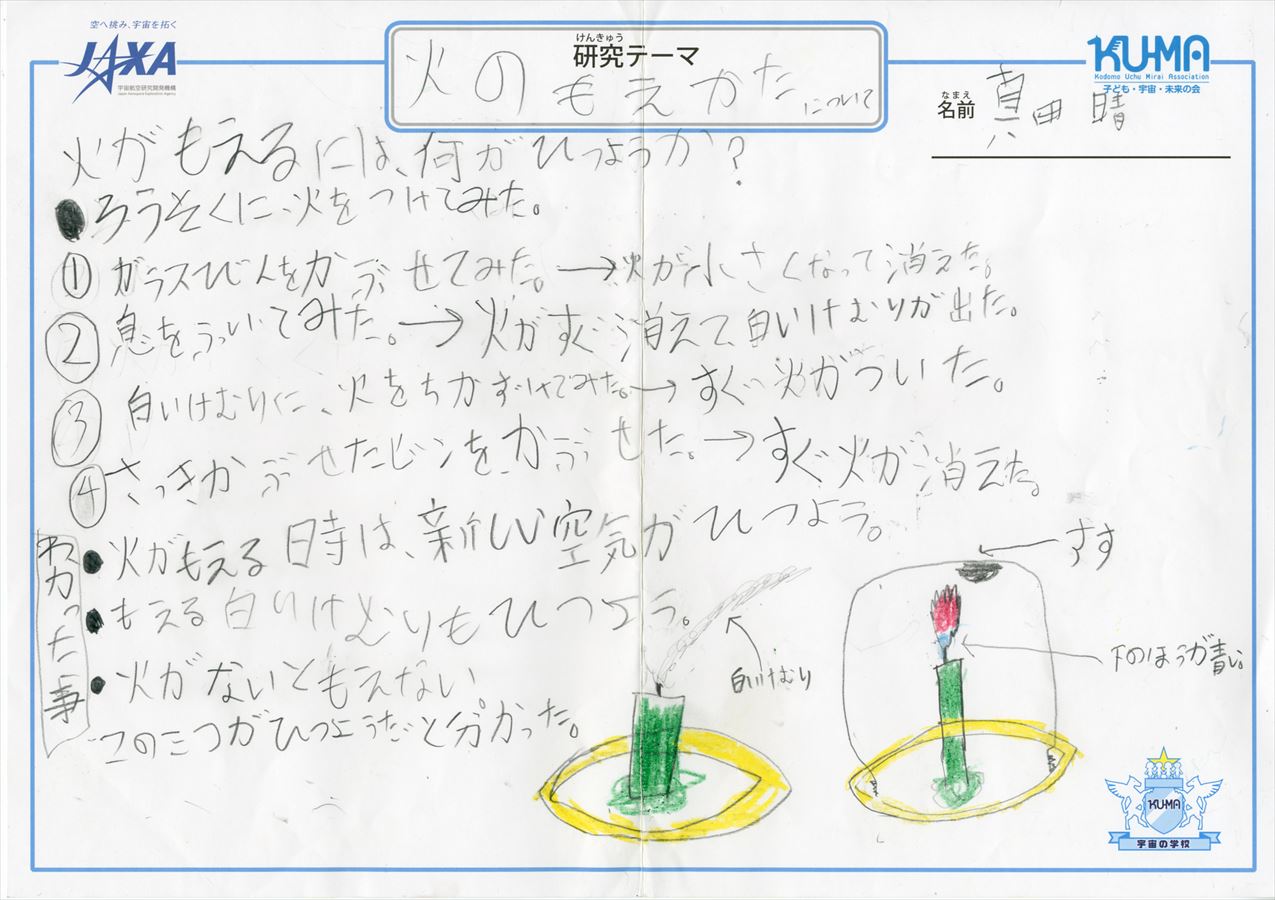 空へ挑み、宇宙を拓く
JAXA
宇宙航空研究開発機構
Japan Aerospace Exploration Agency
けんきゅう
研究テーマ
火のもえかたについて
KU-MA
Kodomo Uchu Mirai Association
子ども・宇宙・未来の会
なまえ
名前 真田 晴
火がもえるには、何がひつようか?
●ろうそくに火をつけてみた。
① ガラスびんをかぶせてみた。→火が小さくなって消えた。
② 息をふいてみた。→火がすぐ消えて、白いけむりが出た。
③ 白いけむりに、火をちかずけてみた。→すぐ火がついた。
④ さっきかぶせたビンをかぶせた。→すぐ火が消えた。
わかった事
●火がもえる時は、新しい空気がひつよう。
●もえる白いけむりもひつよう。
●火がないともえない。
この三つがひつようだと分かった。
白いけむり
すす
下のほうが青い。
KU-MA
宇宙の学校